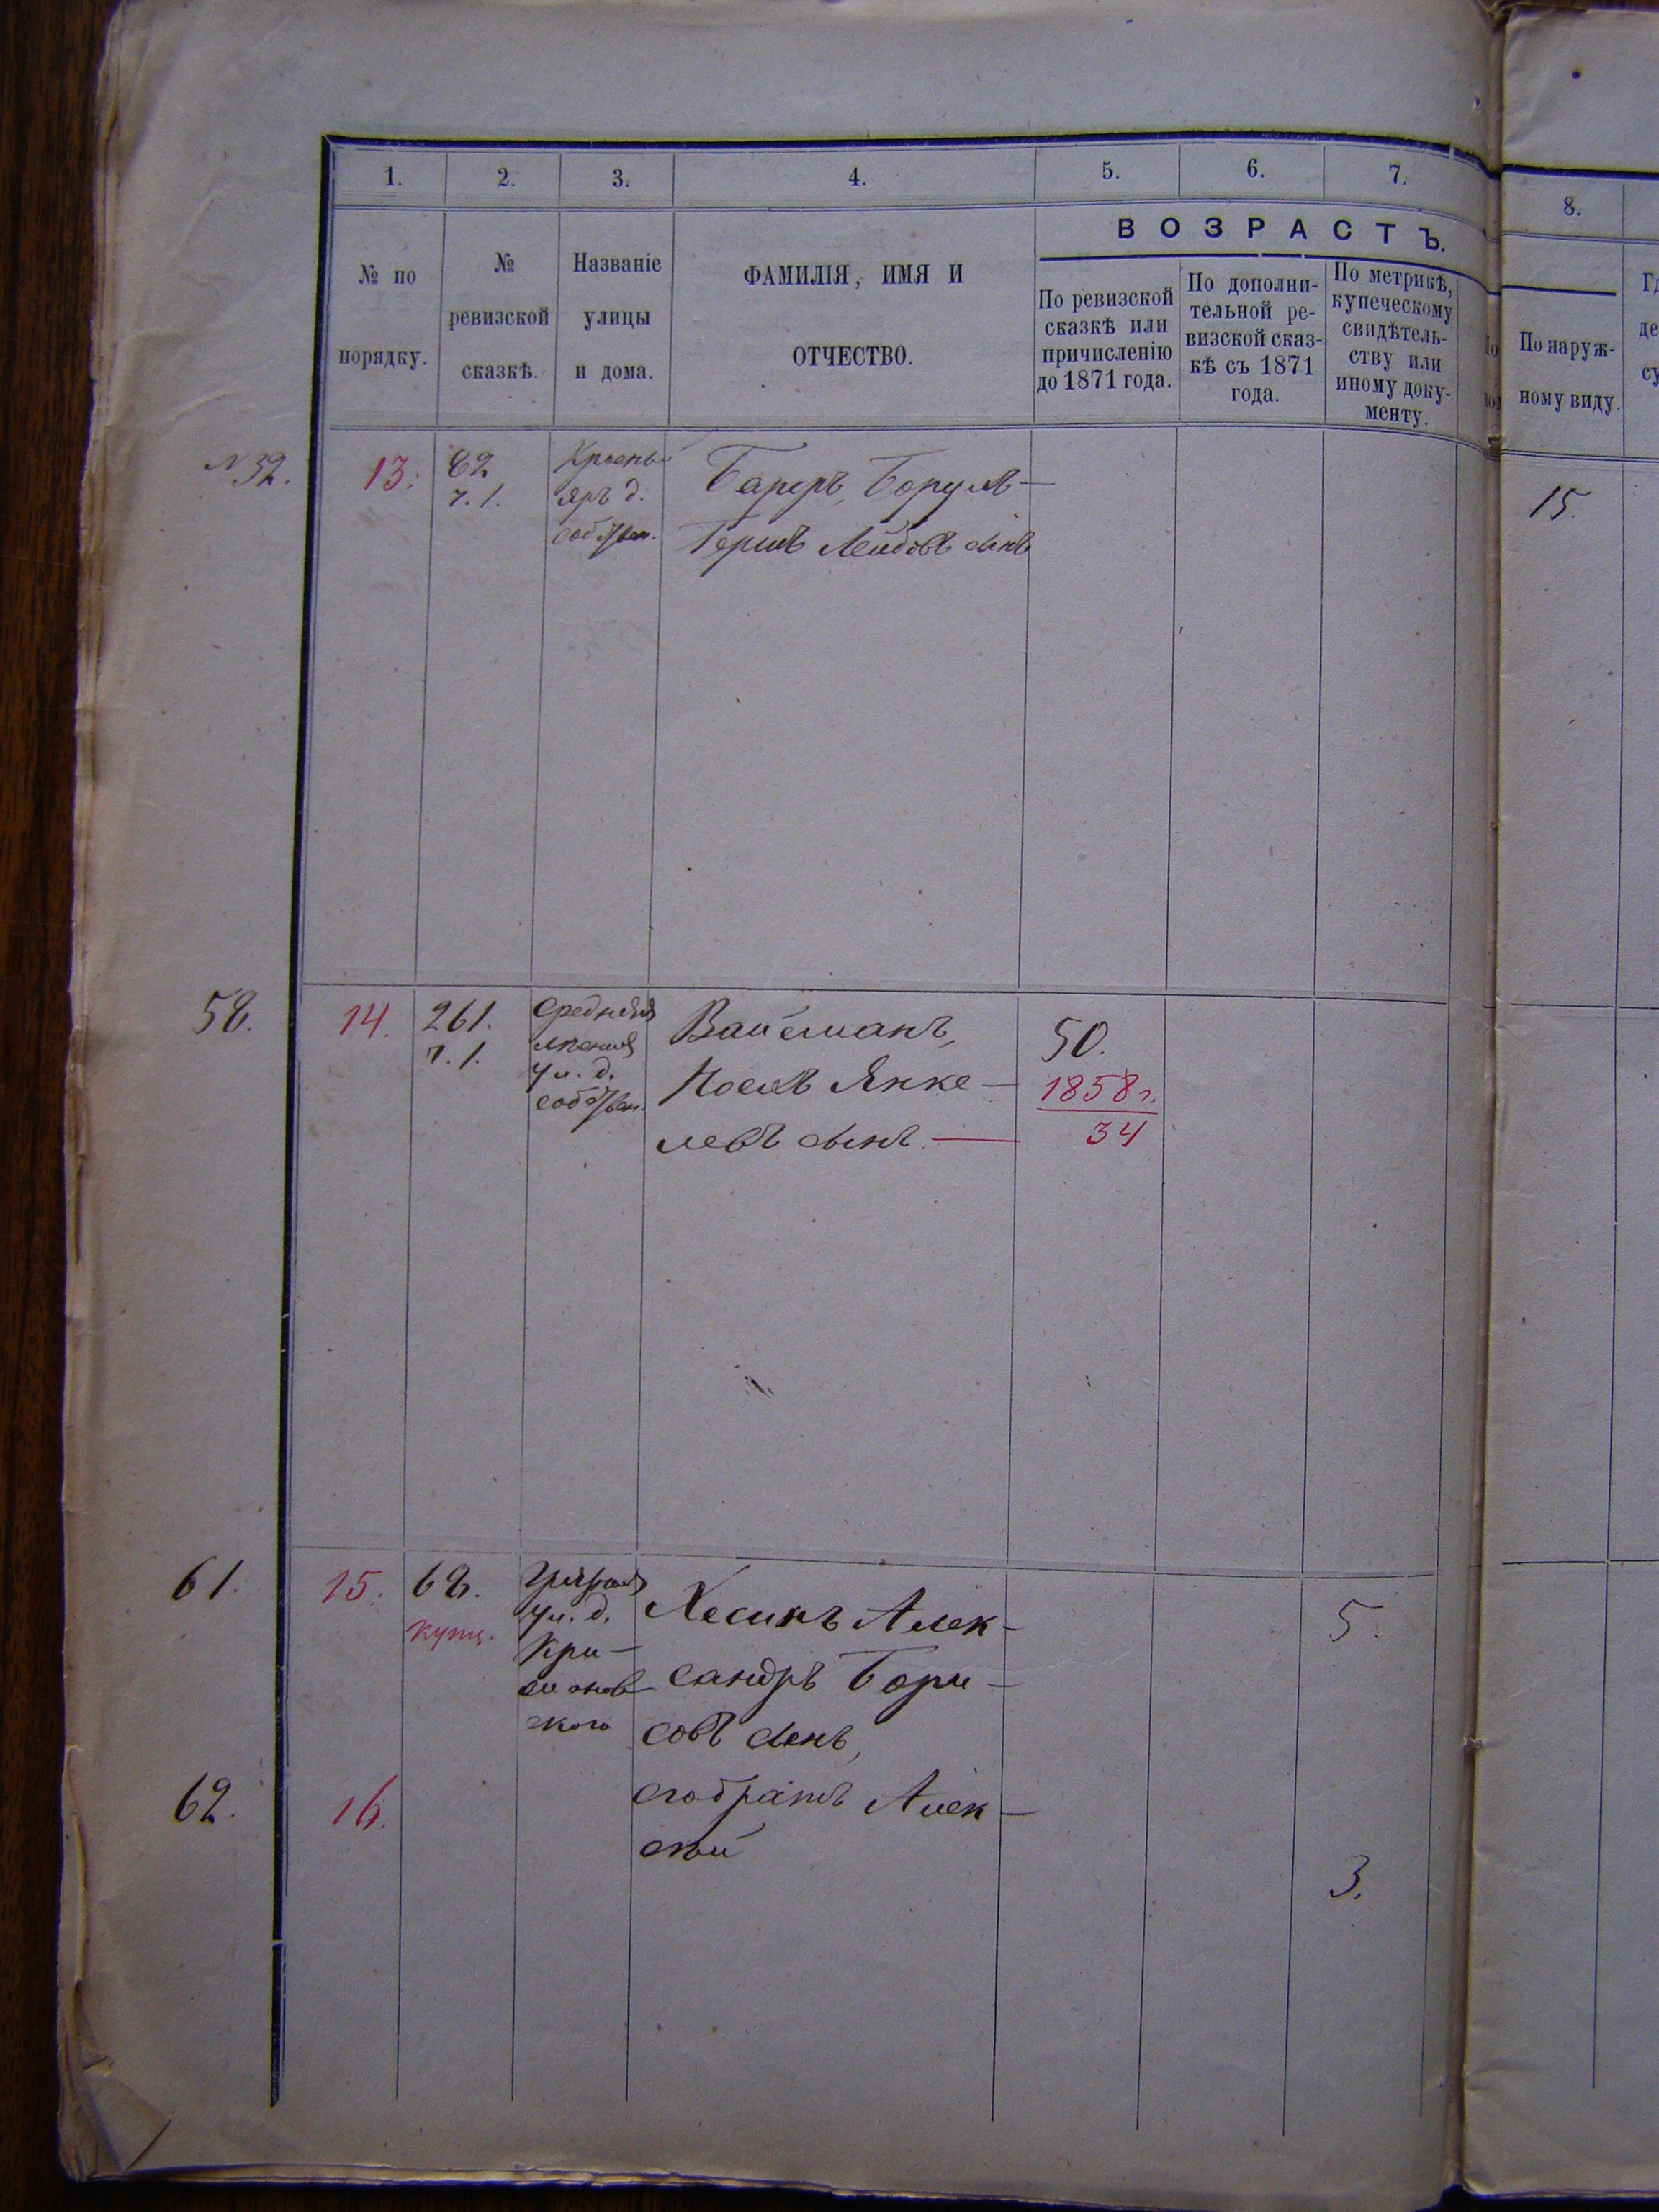 1. 2. 3. 4. 5. 6. 7. 8.
ВОЗРАСТЪ.
№ по порядку.
№ ревизской сказкѣ.
Названіе улицы и дома.
ФАМИЛІЯ, ИМЯ И ОТЧЕСТВО.
По ревизской
сказкѣ или
причисленію
до 1871 года.
По дополни-
тельной ре-
визской сказ-
кѣ съ 1871
года.
По метрикѣ,
купеческому
свидѣтель-
ству или
иному доку-
менту.
По наруж-
ному виду.
№ 32. 13. 82
ч. 1.
яръ д.
собствен.
Борухъ-
Гершъ Лейбовъ сынъ
15.
58. 14. 261.
ч. 1.
Средняя
ул. д.
собствен.
Вайсманъ,
Иосель Янке-
левъ сынъ.
50.
1858 г.
34
61. 15. 68.
купц.
ул. д.
Хесинъ Алек-
сандръ Бори-
совъ сынъ,
5.
62. 16.
его братъ Алек-
сѣй
3.